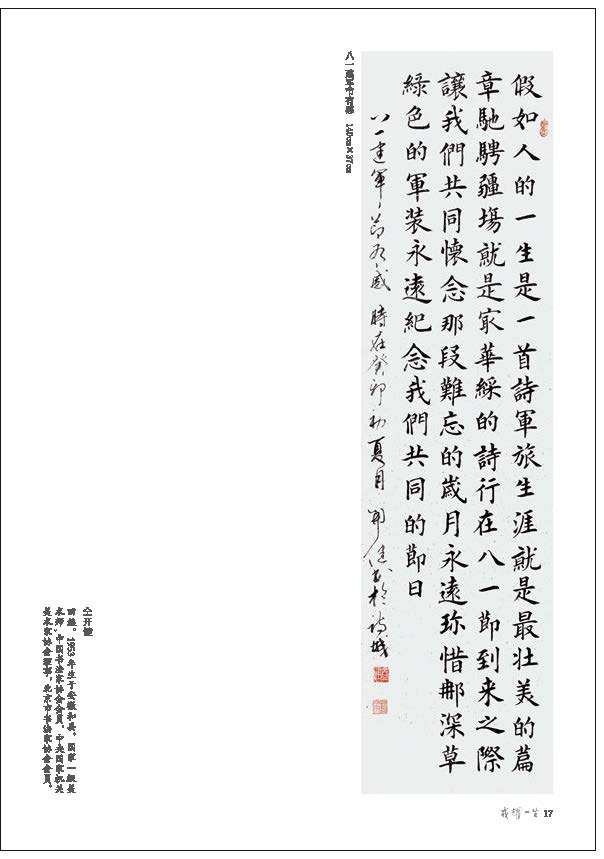 假如人的一生是一首詩軍旅生涯就是最壯美的篇
章馳騁疆塲就是冣華綵的詩行在八一節到來之際
讓我們共同懷念那段難忘的歲月永遠珎惜那深草
綠色的軍装永遠紀念我們共同的節日
八一建軍節有感 時在癸卯初夏月 開健書於詩城
八一建军节有感 140cm×37cm
仝开健
1953年生于安徽和县。国家一级美
术师，中国书法家协会会员，中央国家机关
美术家协会理事，北京市书法家协会会员。
一生 17